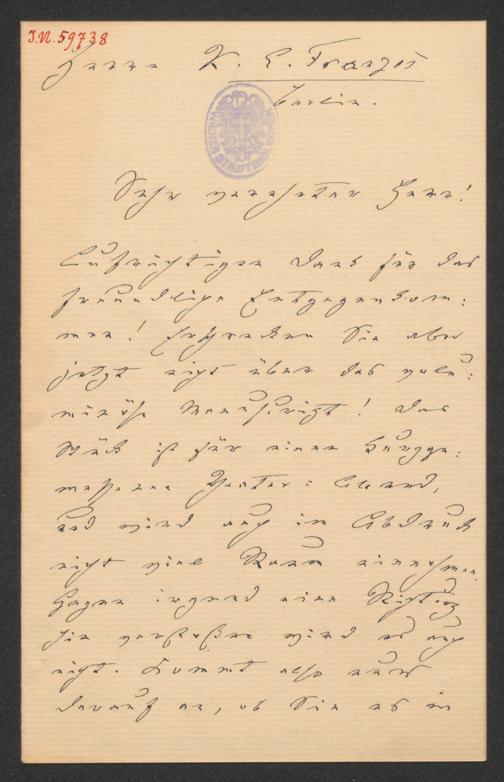 I.N. 59738
Herrn K. E. Franzos
Berlin.
WIENER STADTBIBLIOTHEK
Sehr verehrter Herr!
Aufrichtigen Dank für das
freundliche Entgegenkom-
men! Erschrecken Sie aber
jetzt nicht über das volu-
minöse Manuscript! Das
Stück ist für einen kurzge-
messenen Theater-Abend,
und wird auch im Abdruck
nicht viel Raum einnehmen.
Gegen irgend eine Richtung
hin verstoßen wird es auch
nicht. Kommt also nur
darauf an, ob Sie es in